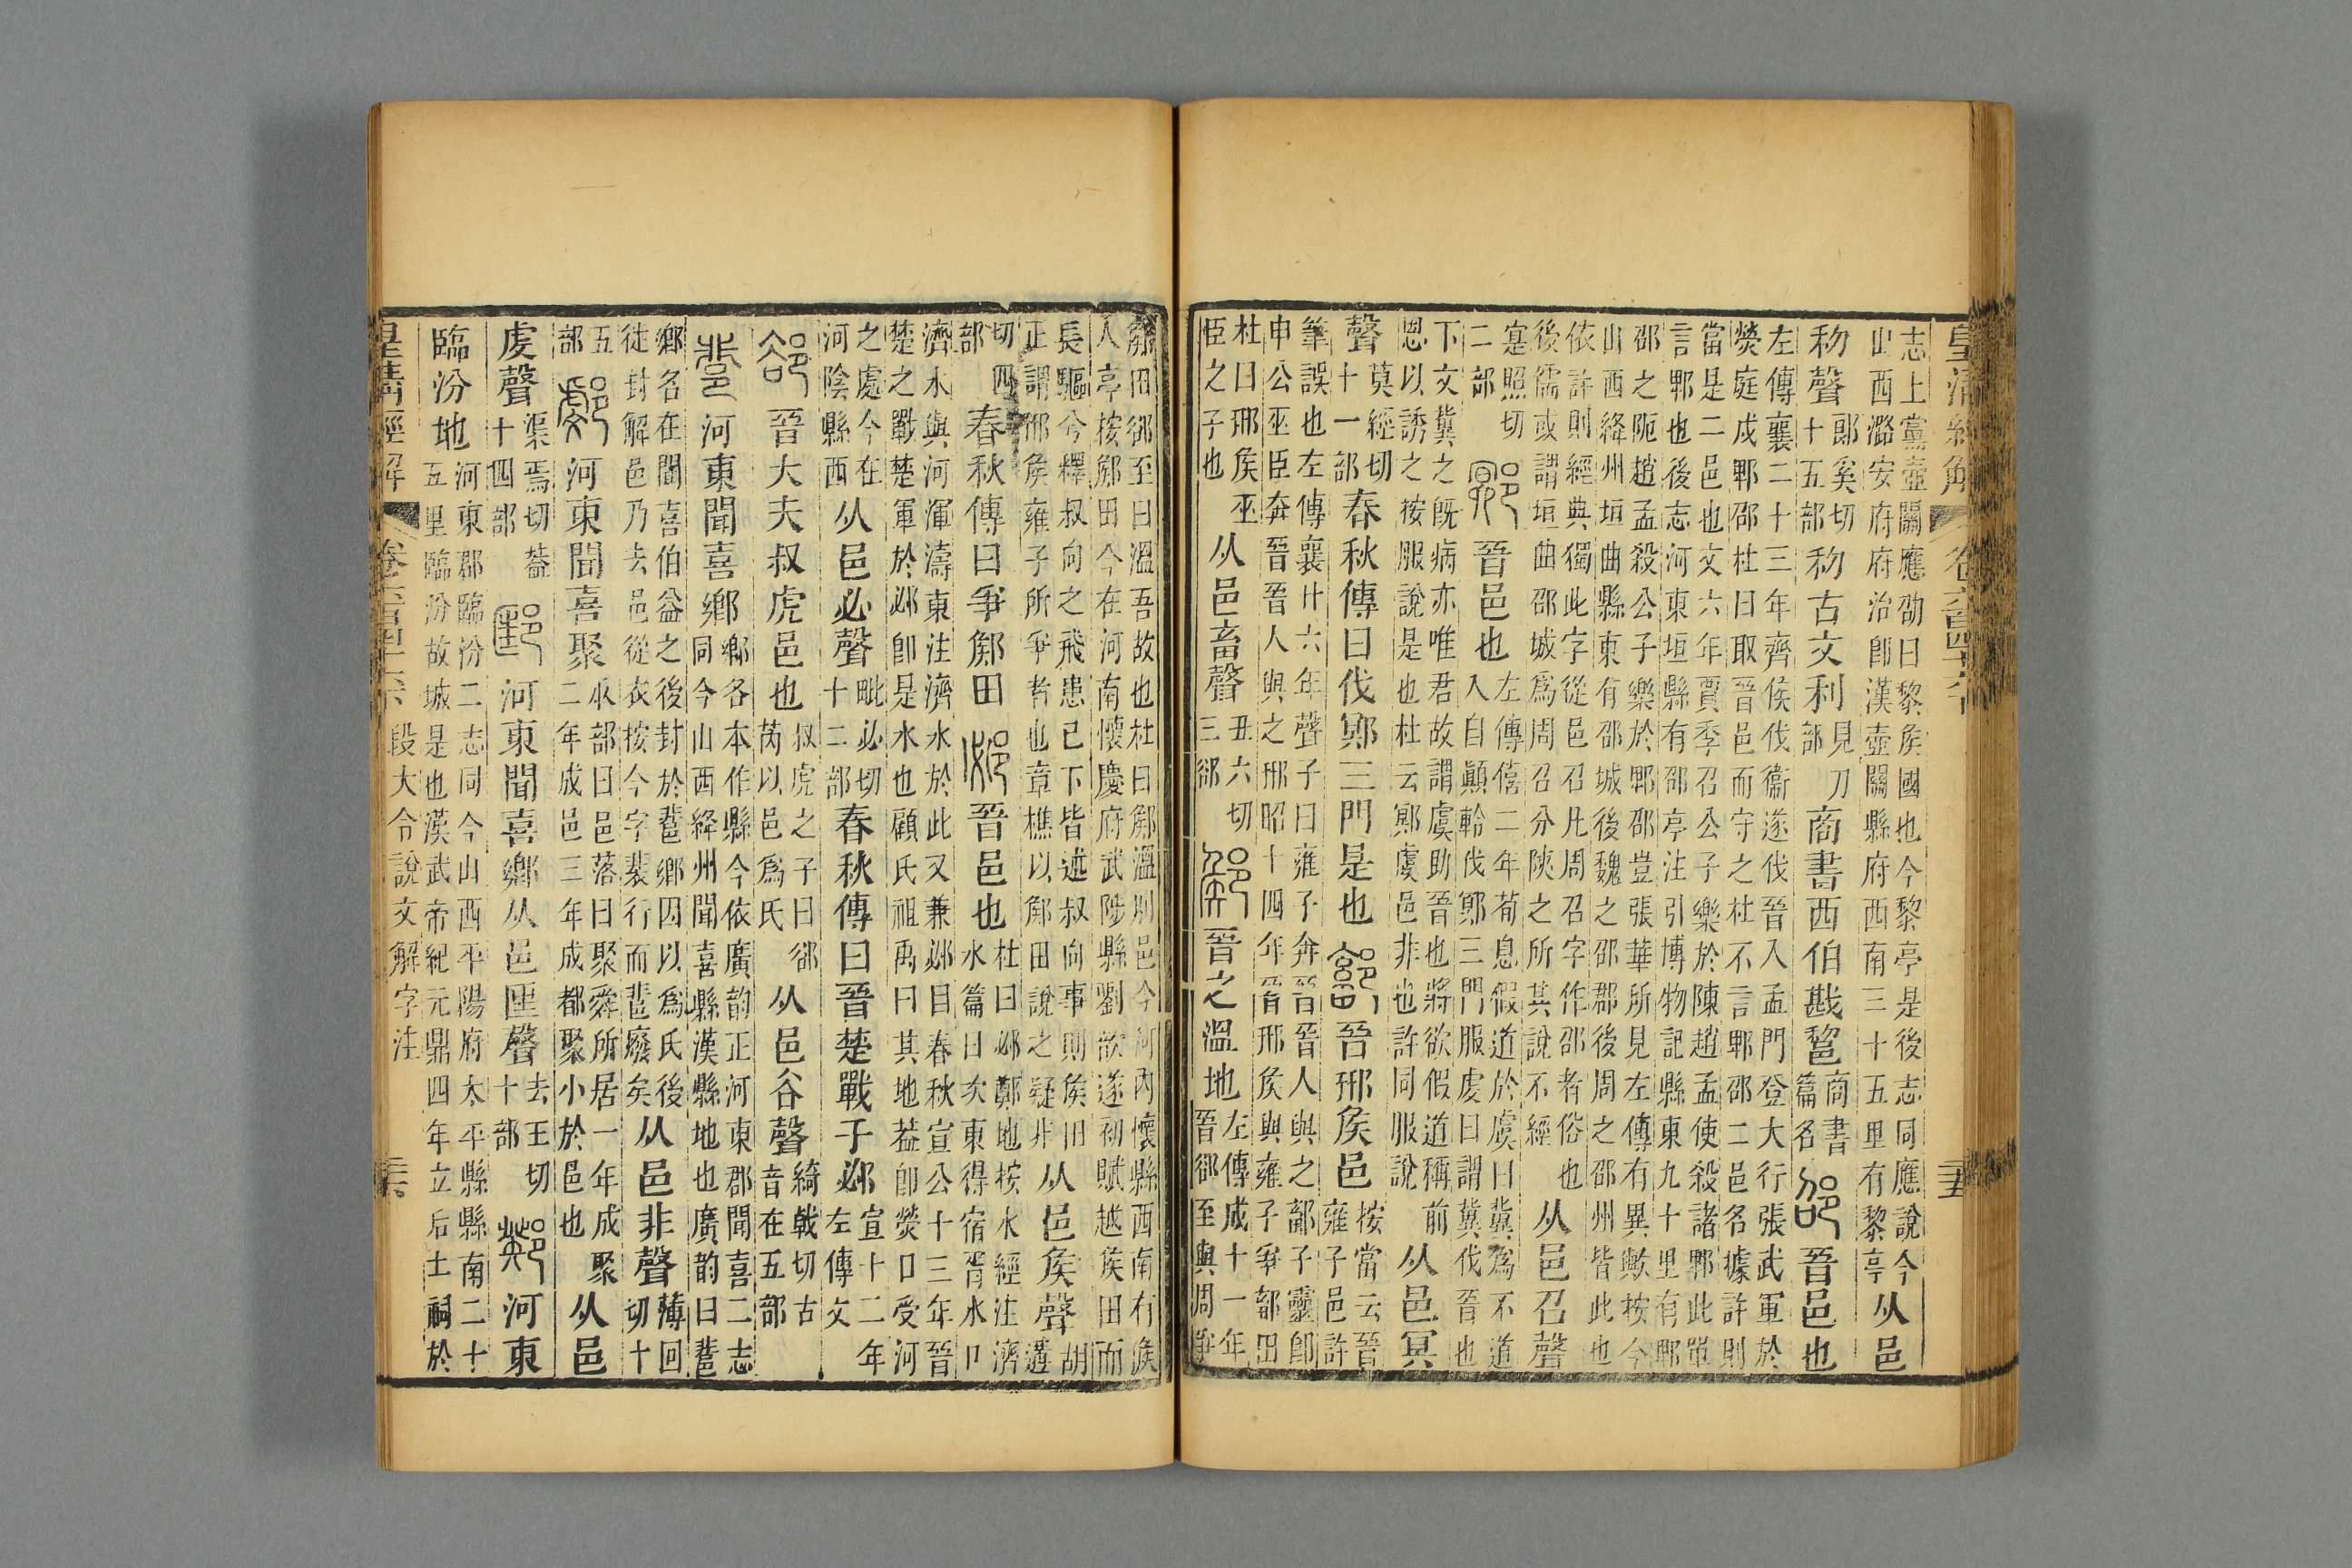 皇清經解 卷六百四十六下 二十五
志上黨壺關應劭曰黎矦國也今黎亭是後志同應說今
山西潞安府府治卽漢壺關縣府西南三十五里有黎亭 从邑
𥝢聲 郎奚切十五部 𥝢古文利 見刀部 商書西伯戡𨛫 商書篇名 邵 晉邑也
左傳襄二十三年齊侯伐衞遂伐晉入孟門登大行張武軍於
熒庭戍郫邵杜曰取晉邑而守之杜不言郫邵二邑名據許則
當是二邑也文六年賈季召公子樂於陳趙孟使殺諸郫此單
言郫也後志河東垣縣有邵亭注引博物記縣東九十里有郫
邵之阨趙孟殺公子樂於郫邵豈張華所見左傳有異歟按今
山西絳州垣曲縣東有邵城後魏之邵郡後周之邵州皆此也
依許則經典獨此字從邑召凡周召字作邵者俗也
後儒或謂垣曲邵城爲周召分陝之所其說不經 从邑召聲
寔照切二部 鄍 晉邑也 左傳僖二年荀息假道於虞曰冀爲不道
入自顚軨伐鄍三門服虔曰謂冀伐晉也
下文冀之旣病亦唯君故謂虞助晉也將欲假道稱前
恩以誘之按服說是也杜云鄍虞邑非也許同服說 从邑冥
聲 莫經切十一部 春秋傳曰伐鄍三門是也 鄐 晉邢矦邑 按當云晉雍子邑許
筆誤也左傳襄廿六年聲子曰雍子奔晉晉人與之鄐子靈卽
申公巫臣奔晉晉人與之邢昭十四年晉邢矦與雍子爭鄐田
杜曰邢矦巫臣之子也 从邑畜聲 丑六切三部 鄇 晉之溫地 左傳成十一年
晉郤至與周爭
鄇田郤至曰溫吾故也杜曰鄇溫別邑今河內懷縣西南有鄇
人亭按鄇田今在河南懷慶府武陟縣劉歆遂初賦越矦田而
長驅兮釋叔向之飛患已下皆述叔向事則矦田
正謂邢矦雍子所爭者也章樵以鄇田說之疑非 从邑矦聲 胡遘
切四部 春秋傳曰爭鄇田 邲 晉邑也 杜曰邲鄭地按水經注濟
水篇曰次東得宿胥水口
濟水與河渾濤東注濟水於此又兼邲目春秋宣公十三年晉
楚之戰楚軍於邲卽是水也顧氏祖禹曰其地葢卽熒口受河
之處今在河陰縣西 从邑必聲 毗必切十二部 春秋傳曰晉楚戰于邲 宣十二年左傳文
郤 晉大夫叔虎邑也 叔虎之子曰郤芮以邑爲氏 从邑谷聲 綺戟切古音在五部
𨛬 河東聞喜鄉 鄉各本作縣今依廣韵正河東郡聞喜二志
同今山西絳州聞喜縣漢縣地也廣韵曰𨛬
鄉名在聞喜伯益之後封於𨛬鄉因以爲氏後
徙封解邑乃去邑從衣按今字裴行而𨛬廢矣 从邑非聲 薄回切十
五部 河東聞喜聚 㐺部曰邑落曰聚舜所居一年成聚
二年成邑三年成都聚小於邑也 从邑
虔聲 渠焉切十四部 河東聞喜鄉从邑匡聲 去王切十部 河東
臨汾地 河東郡臨汾二志同今山西平陽府太平縣縣南二十
五里臨汾故城是也漢武帝紀元鼎四年立后土祠於
皇清經解 卷六百四十六下 段大令說文解字注 二十六